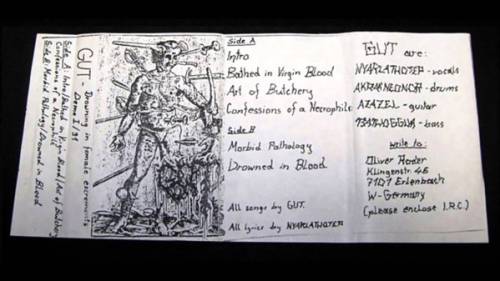 Side A: Intro/Bathed in Virgin Blood/Art of Butchery
Confessions of a Necrophile
Side B: Morbid Pathology/Drowned in Blood
GUT- Drowning in female excrements
Demo I/91
Side A
Intro
Bathed in Virgin Blood
Art of Butchery
Confessions of a Necrophile
Side B
Morbid Pathology
Drowned in Blood
All songs by GUT.
All lyrics by NYARLATHOTEP
GUT are:
NYARLATHOTEP - vocals
- drums
AZAZEL - guitar
- bass
write to:
Oliver
Klingenstr. 46
7101 Erlenbach
W-Germany
(please enclose I.R.C.)